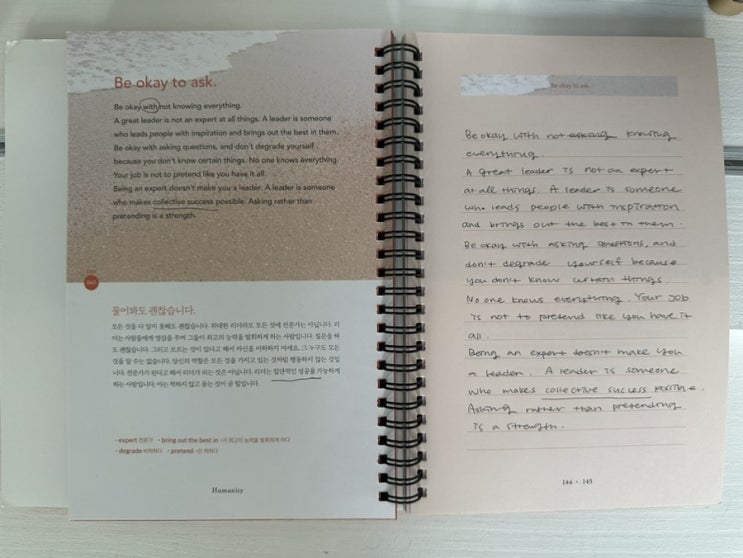 Be okay to ask.
Be okay with not knowing everything.
A great leader is not an expert at all things. A leader is someone
who leads people with inspiration and brings out the best in them.
Be okay with asking questions, and don't degrade yourself
because you don't know certain things. No one knows everything
Your job is not to pretend like you have it all.
Being an expert doesn't make you a leader. A leader is someone
who makes collective success possible. Asking rather than
pretending is a strength.
물어봐도 괜찮습니다.
모든 것을 다 알지 못해도 괜찮습니다. 위대한 리더라도 모든 것에 전문가는 아닙니다. 리
더는 사람들에게 영감을 주며 그들이 최고의 능력을 발휘하게 하는 사람입니다. 질문을 해
도 괜찮습니다. 그리고 모르는 것이 있다고 해서 자신을 비하하지 마세요. 그 누구도 모든
것을 알 수는 없습니다. 당신의 역할은 모든 것을 가지고 있는 것처럼 행동하지 않는 것입니
다. 전문가가 된다고 해서 리더가 되는 것은 아닙니다. 리더는 집단적인 성공을 가능하게
하는 사람입니다. 아는 척하지 않고 묻는 것이 곧 힘입니다.
• expert 전문가 • bring out the best in ~가 최고의 능력을 발휘하게 하다
• degrade 비하하다 • pretend ~인 척하다
Humanity
Be okay to ask.
Be okay with not asking knowing
everything
A great leader is not an expert
at all things. A leader is someone
who leads people with inspiration
and brings out the best in them.
Be okay with asking questions, and
don't degrade yourself because
you don't know curtain things
No one knows everything. Your job
is not to pretend like you have it
all.
Being an expert doesn't make you
a leader. A leader is someone
who makes collective success possible.
Asking rather than pretending
is a strength.
144 • 145